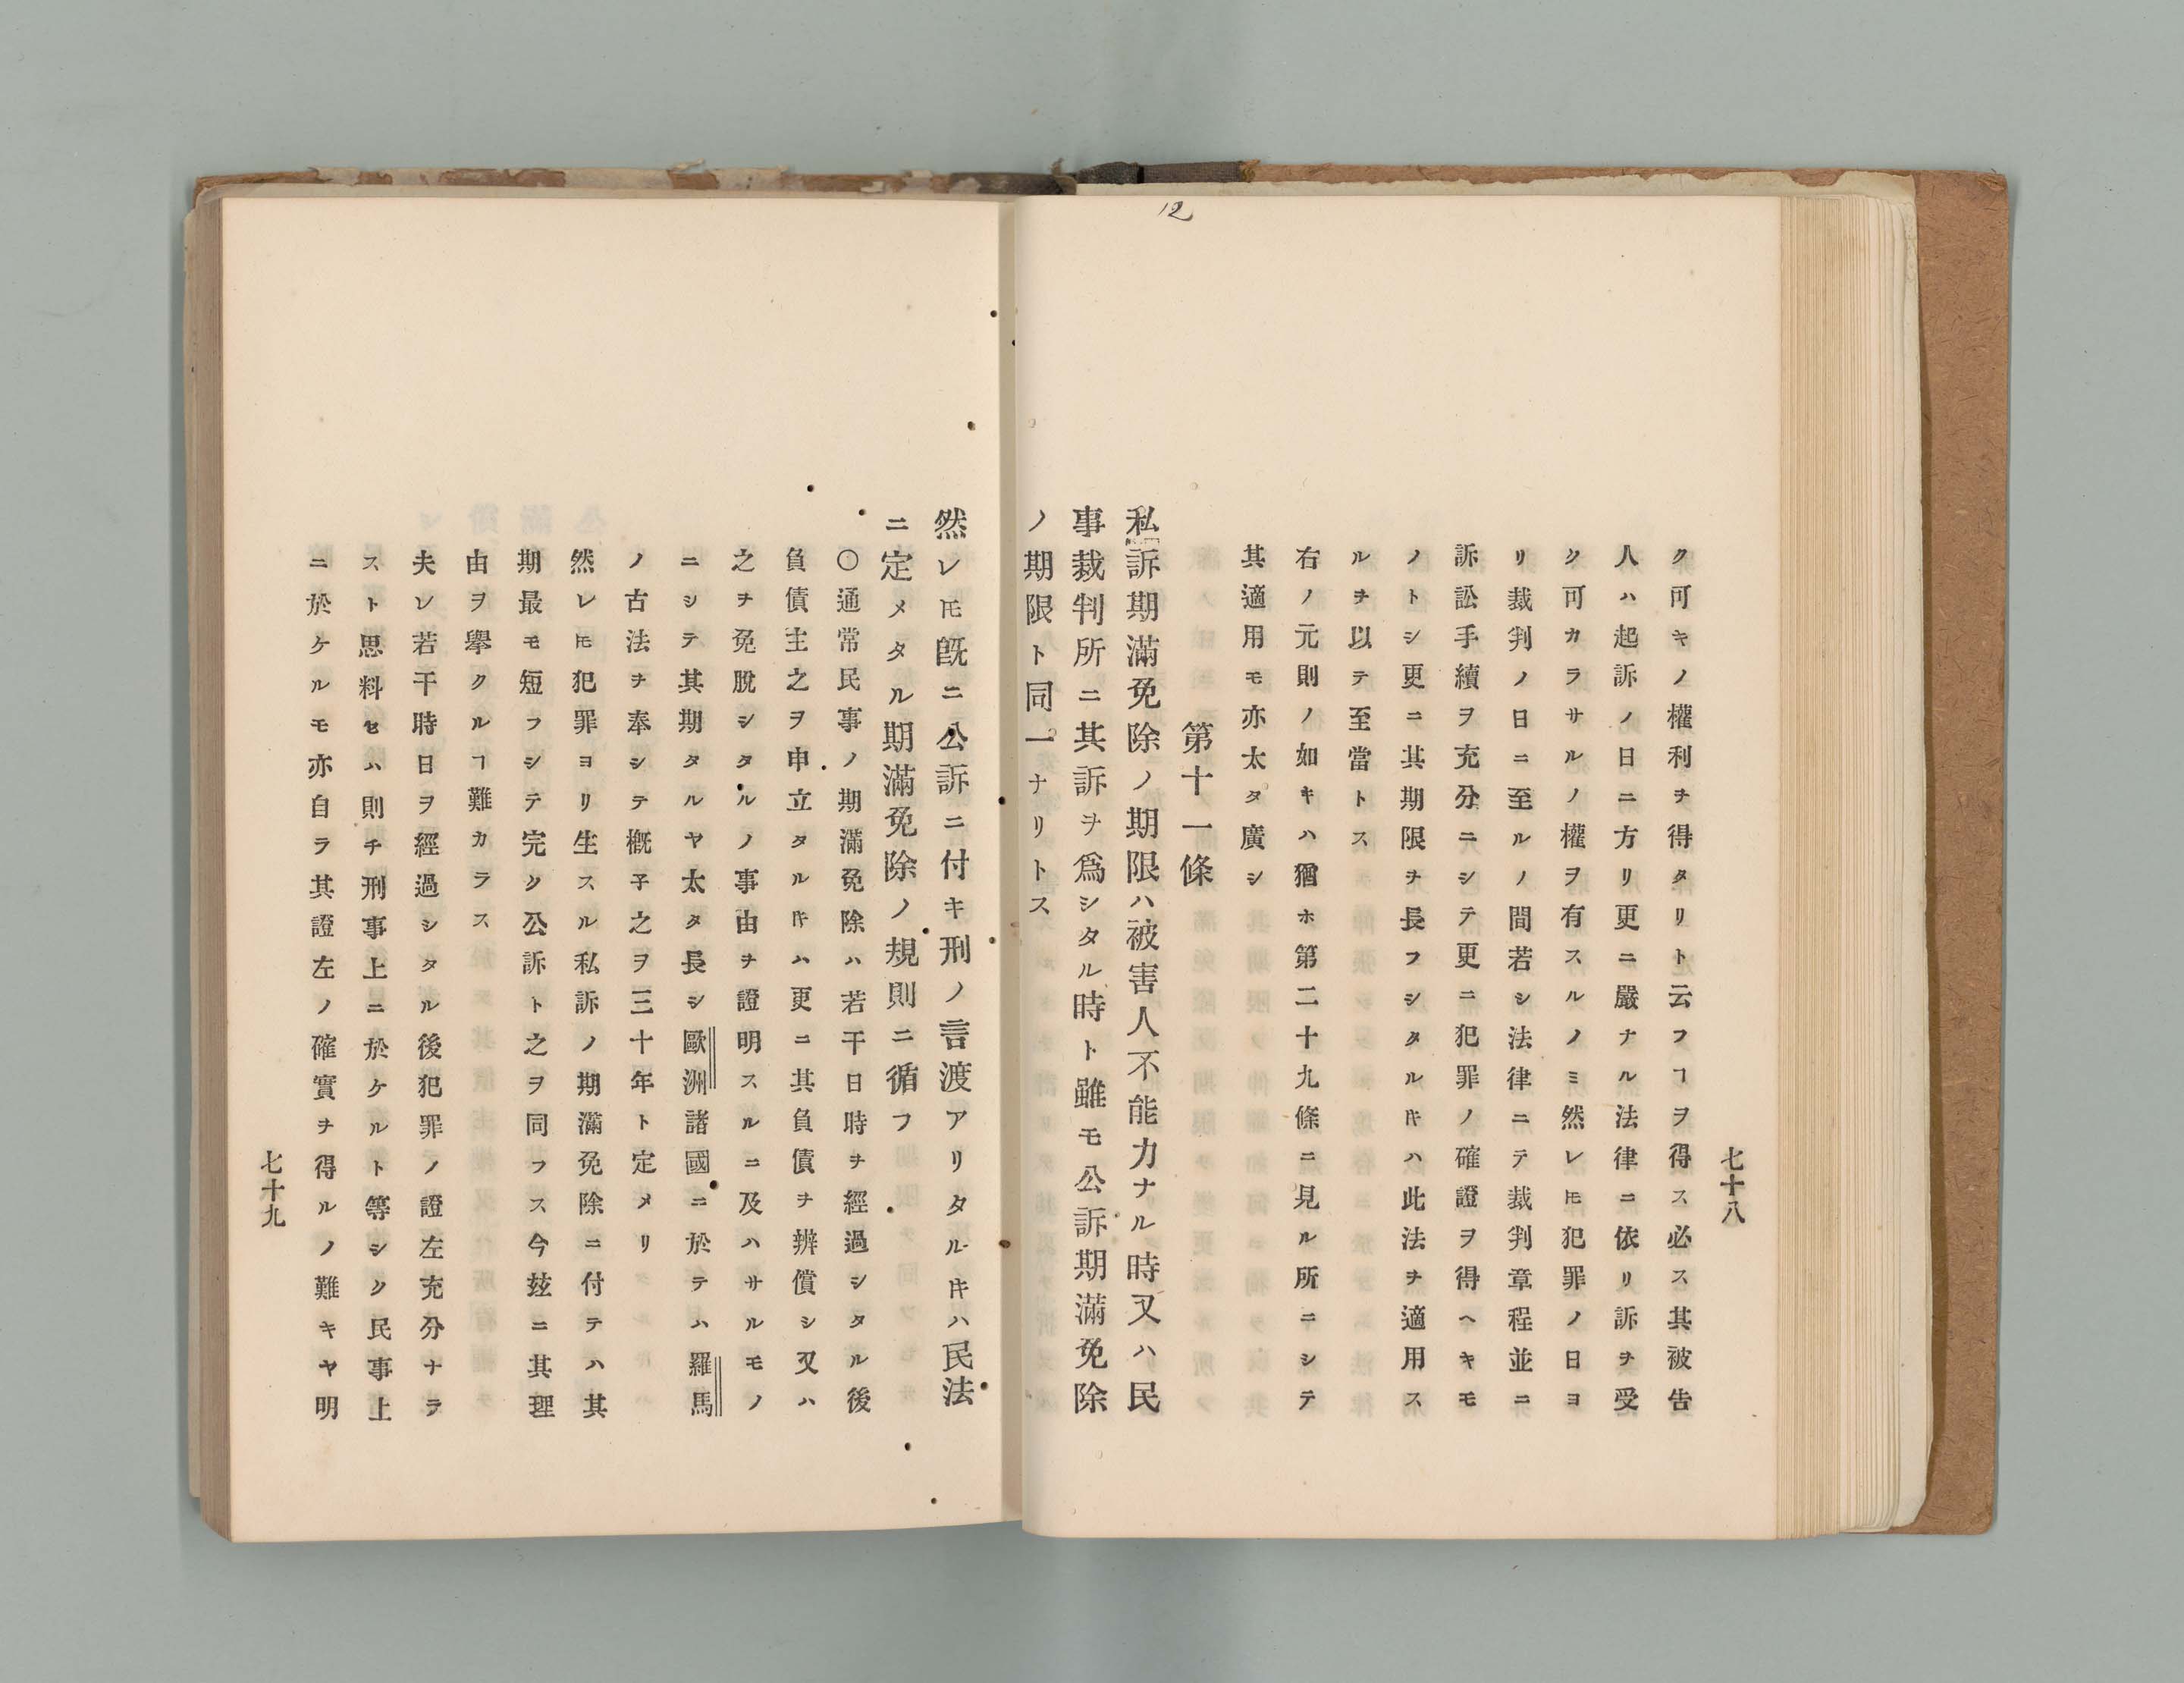 12
七十八
ク可キノ權利ヲ得タリト云フヿヲ得ス必ス其被告
人ハ起訴ノ日ニ方リ更ニ嚴ナル法律ニ依リ訴ヲ受
ク可カラサルノ權ヲ有スルノミ然レ𪜈犯罪ノ日ヨ
リ裁判ノ日ニ至ルノ間若シ法律ニテ裁判章程並ニ
訴訟手續ヲ充分ニシテ更ニ犯罪ノ確證ヲ得ヘキモ
ノトシ更ニ其期限ヲ長フシタルキハ此法ヲ適用ス
ルヲ以テ至當トス
右ノ元則ノ如キハ猶ホ第二十九條ニ見ル所ニシテ
其適用モ亦太タ廣シ
第十一條
私訴期滿免除ノ期限ハ被害人不能力ナル時又ハ民
事裁判所ニ其訴ヲ爲シタル時ト雖モ公訴期滿免除
ノ期限ト同一ナリトス
然レ𪜈既ニ公訴ニ付キ刑ノ言渡アリタルキハ民法
ニ定メタル期滿免除ノ規則ニ循フ
〇通常民事ノ期滿免除ハ若干日時ヲ經過シタル後
負債主之ヲ申立タルキハ更ニ其負債ヲ辨償シ又ハ
之ヲ免脫シタルノ事由ヲ證明スルニ及ハサルモノ
ニシテ其期タルヤ太タ長シ歐洲諸國ニ於テハ羅馬
ノ古法ヲ奉シテ槪子之ヲ三十年ト定メリ
然レ𪜈犯罪ヨリ生スル私訴ノ期滿免除ニ付テハ其
期最モ短フシテ完ク公訴ト之ヲ同フス今玆ニ其理
由ヲ擧クルヿ難カラス
夫レ若干時日ヲ經過シタル後犯罪ノ證左充分ナラ
スト思料セハ則チ刑事上ニ於ケルト等シク民事上
ニ於ケルモ亦自ラ其證左ノ確實ヲ得ルノ難キヤ明
七十九